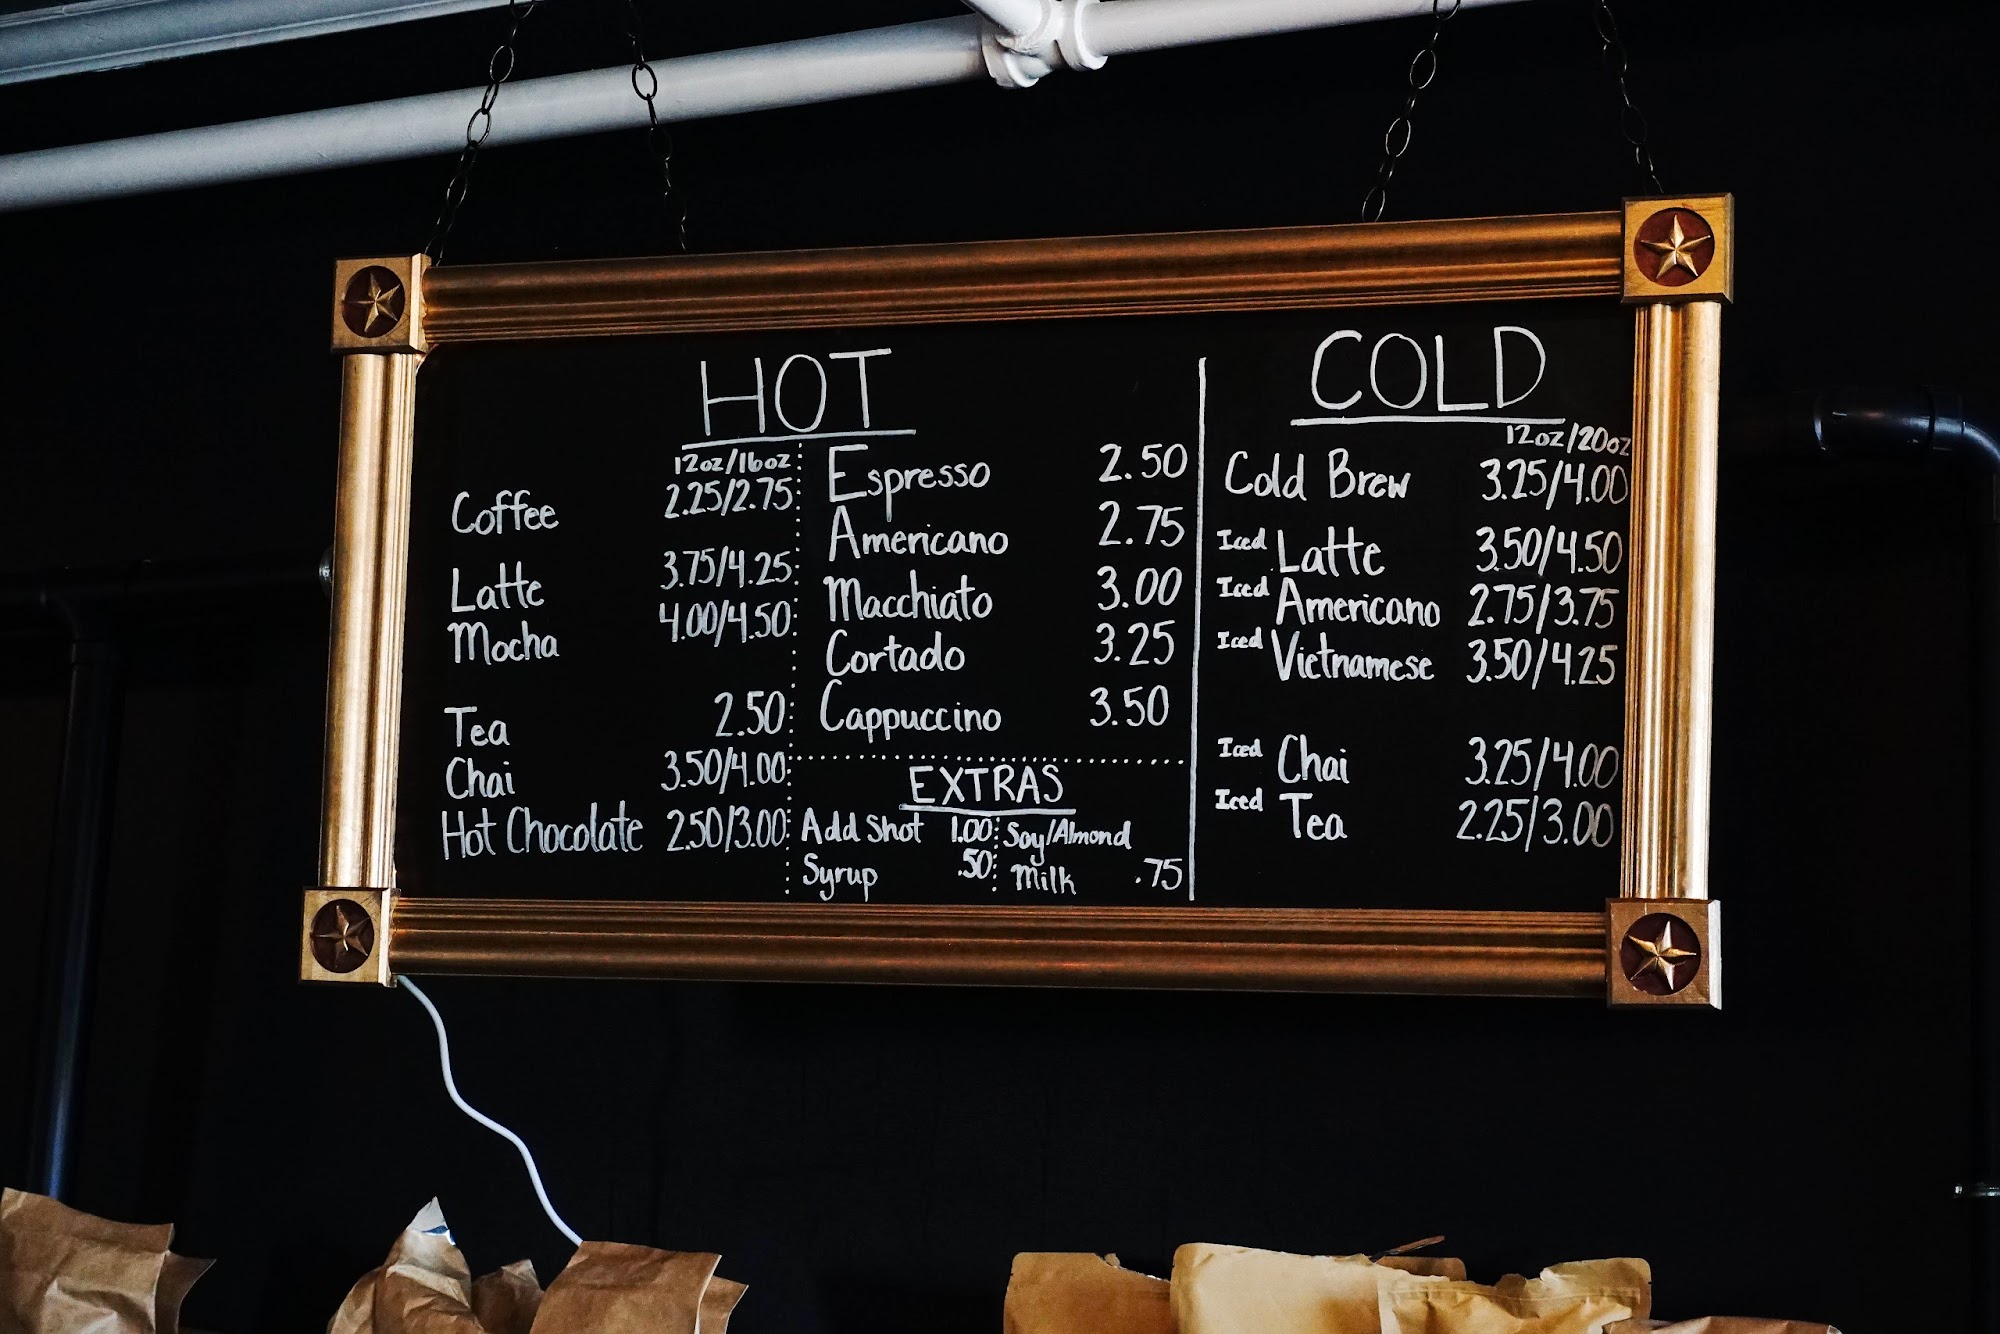 HOT
12oz/16oz
Coffee 2.25/2.75
Latte 3.75/4.25
Mocha 4.00/4.50
Tea 2.50
Chai 3.50/4.00
Hot Chocolate 2.50/3.00
Espresso 2.50
Americano 2.75
Macchiato 3.00
Cortado 3.25
Cappuccino 3.50
EXTRAS
Add Shot 1.00
Syrup .50
Soy/Almond
Milk .75
COLD
12oz/20oz
Cold Brew 3.25/4.00
Iced Latte 3.50/4.50
Iced Americano 2.75/3.75
Iced Vietnamese 3.50/4.25
Iced Chai 3.25/4.00
Iced Tea 2.25/3.00